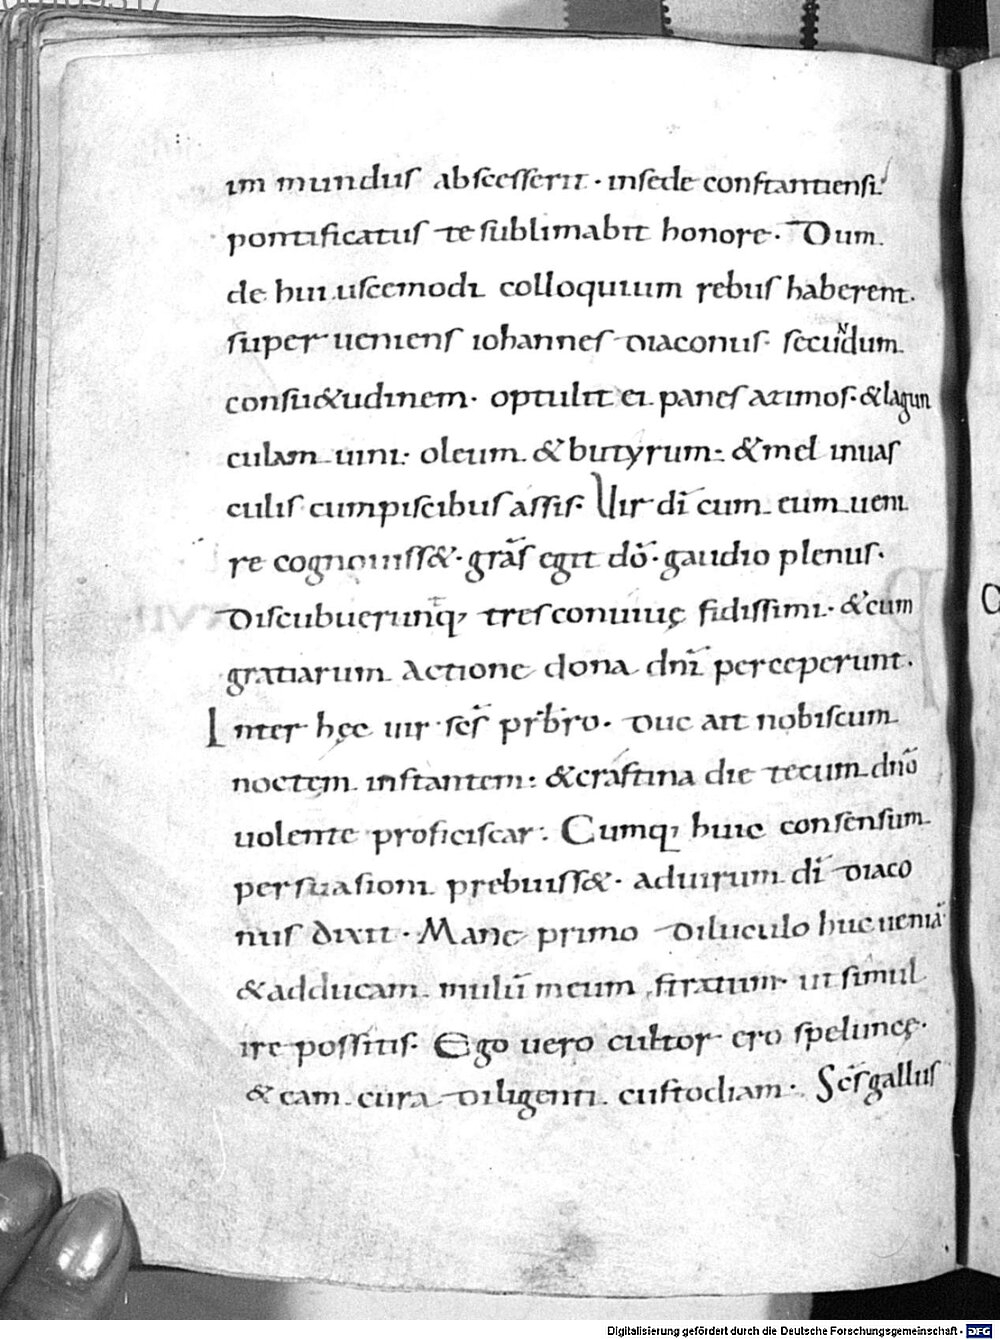 im mundus abscesserit · insede constantiensi.
pontificatus te sublimabit honore · Dum
de huiuscemodi colloquium rebus haberent.
superueniens iohannes diaconus · secuNdum
consu&udinem · optulit ei panes azimos · & lagun
culam uini · oleum & butyrum : & mel inuas
culis cumpiscibus assis · Uir dī cum eum ueni
re cognouiss& · grās egit dō · gaudio plenus ·
Discubuerunq; tres conuiuę fidissimi · & cum
gratiarum actione dona dnī perceperunt ·
Inter hęc uir scs̄ prb̄ro · Duc ait nobiscum
noctem instantem : & crastina die tecum dnō
uolente proficiscar · Cumq; huic consensum
persuasioni prebuiss& · aduirum dī diaco
nus dixit · Mane primo diluculo huc ueniā
& adducam mulū meum stratum · ut simul
ire possitis · Ego uero cultor ero speluncę ·
& eam cura diligenti custodiam · Scs̄ gallus
Digitalisierung gefördert durch die Deutsche Forschungsgemeinschaft - DFG